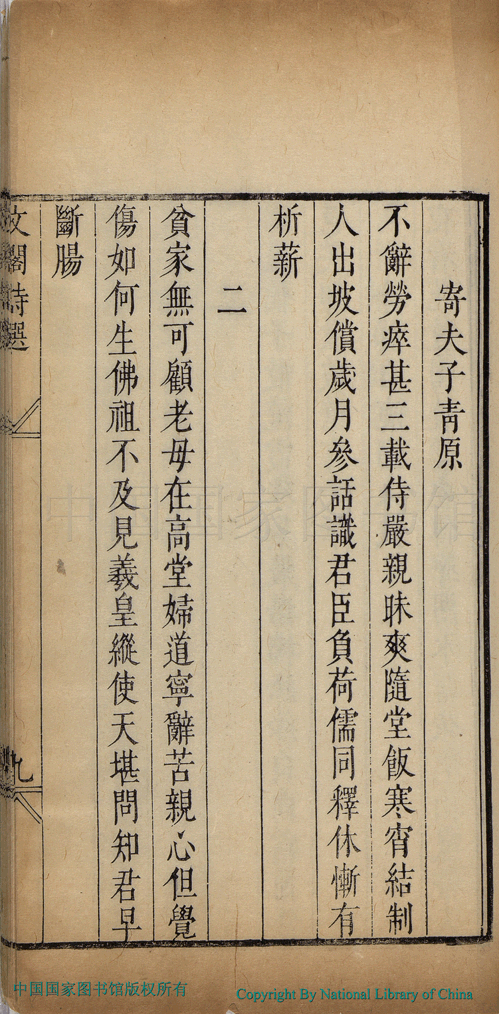 寄夫子青原
不辭勞瘁甚三載侍嚴親昧爽隨堂飯寒宵結制
人出坡償歲月參話識君臣負荷儒同釋休慚有
析薪
二
貧家無可顧老母在高堂婦道寧辭苦親心但覺
傷如何生佛祖不及見羲皇縱使天堪問知君早
斷腸
文閣詩選
九
中国国家图书馆
中国国家图书馆版权所有
Copyright By National Library of China